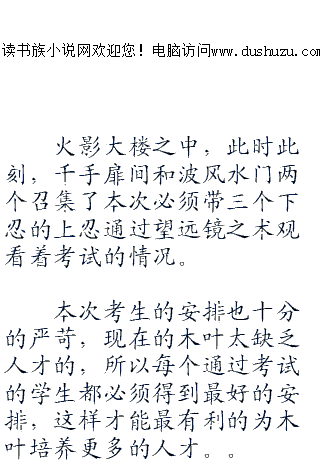 读书族小说网欢迎您！电脑访问www.dushuzu.com
火影大楼之中，此时此
刻，千手扉间和波风水门两
个召集了本次必须带三个下
忍的上忍通过望远镜之术观
看着考试的情况。
本次考生的安排也十分
的严苛，现在的木叶太缺乏
人才的，所以每个通过考试
的学生都必须得到最好的安
排，这样才能最有利的为木
叶培养更多的人才。。